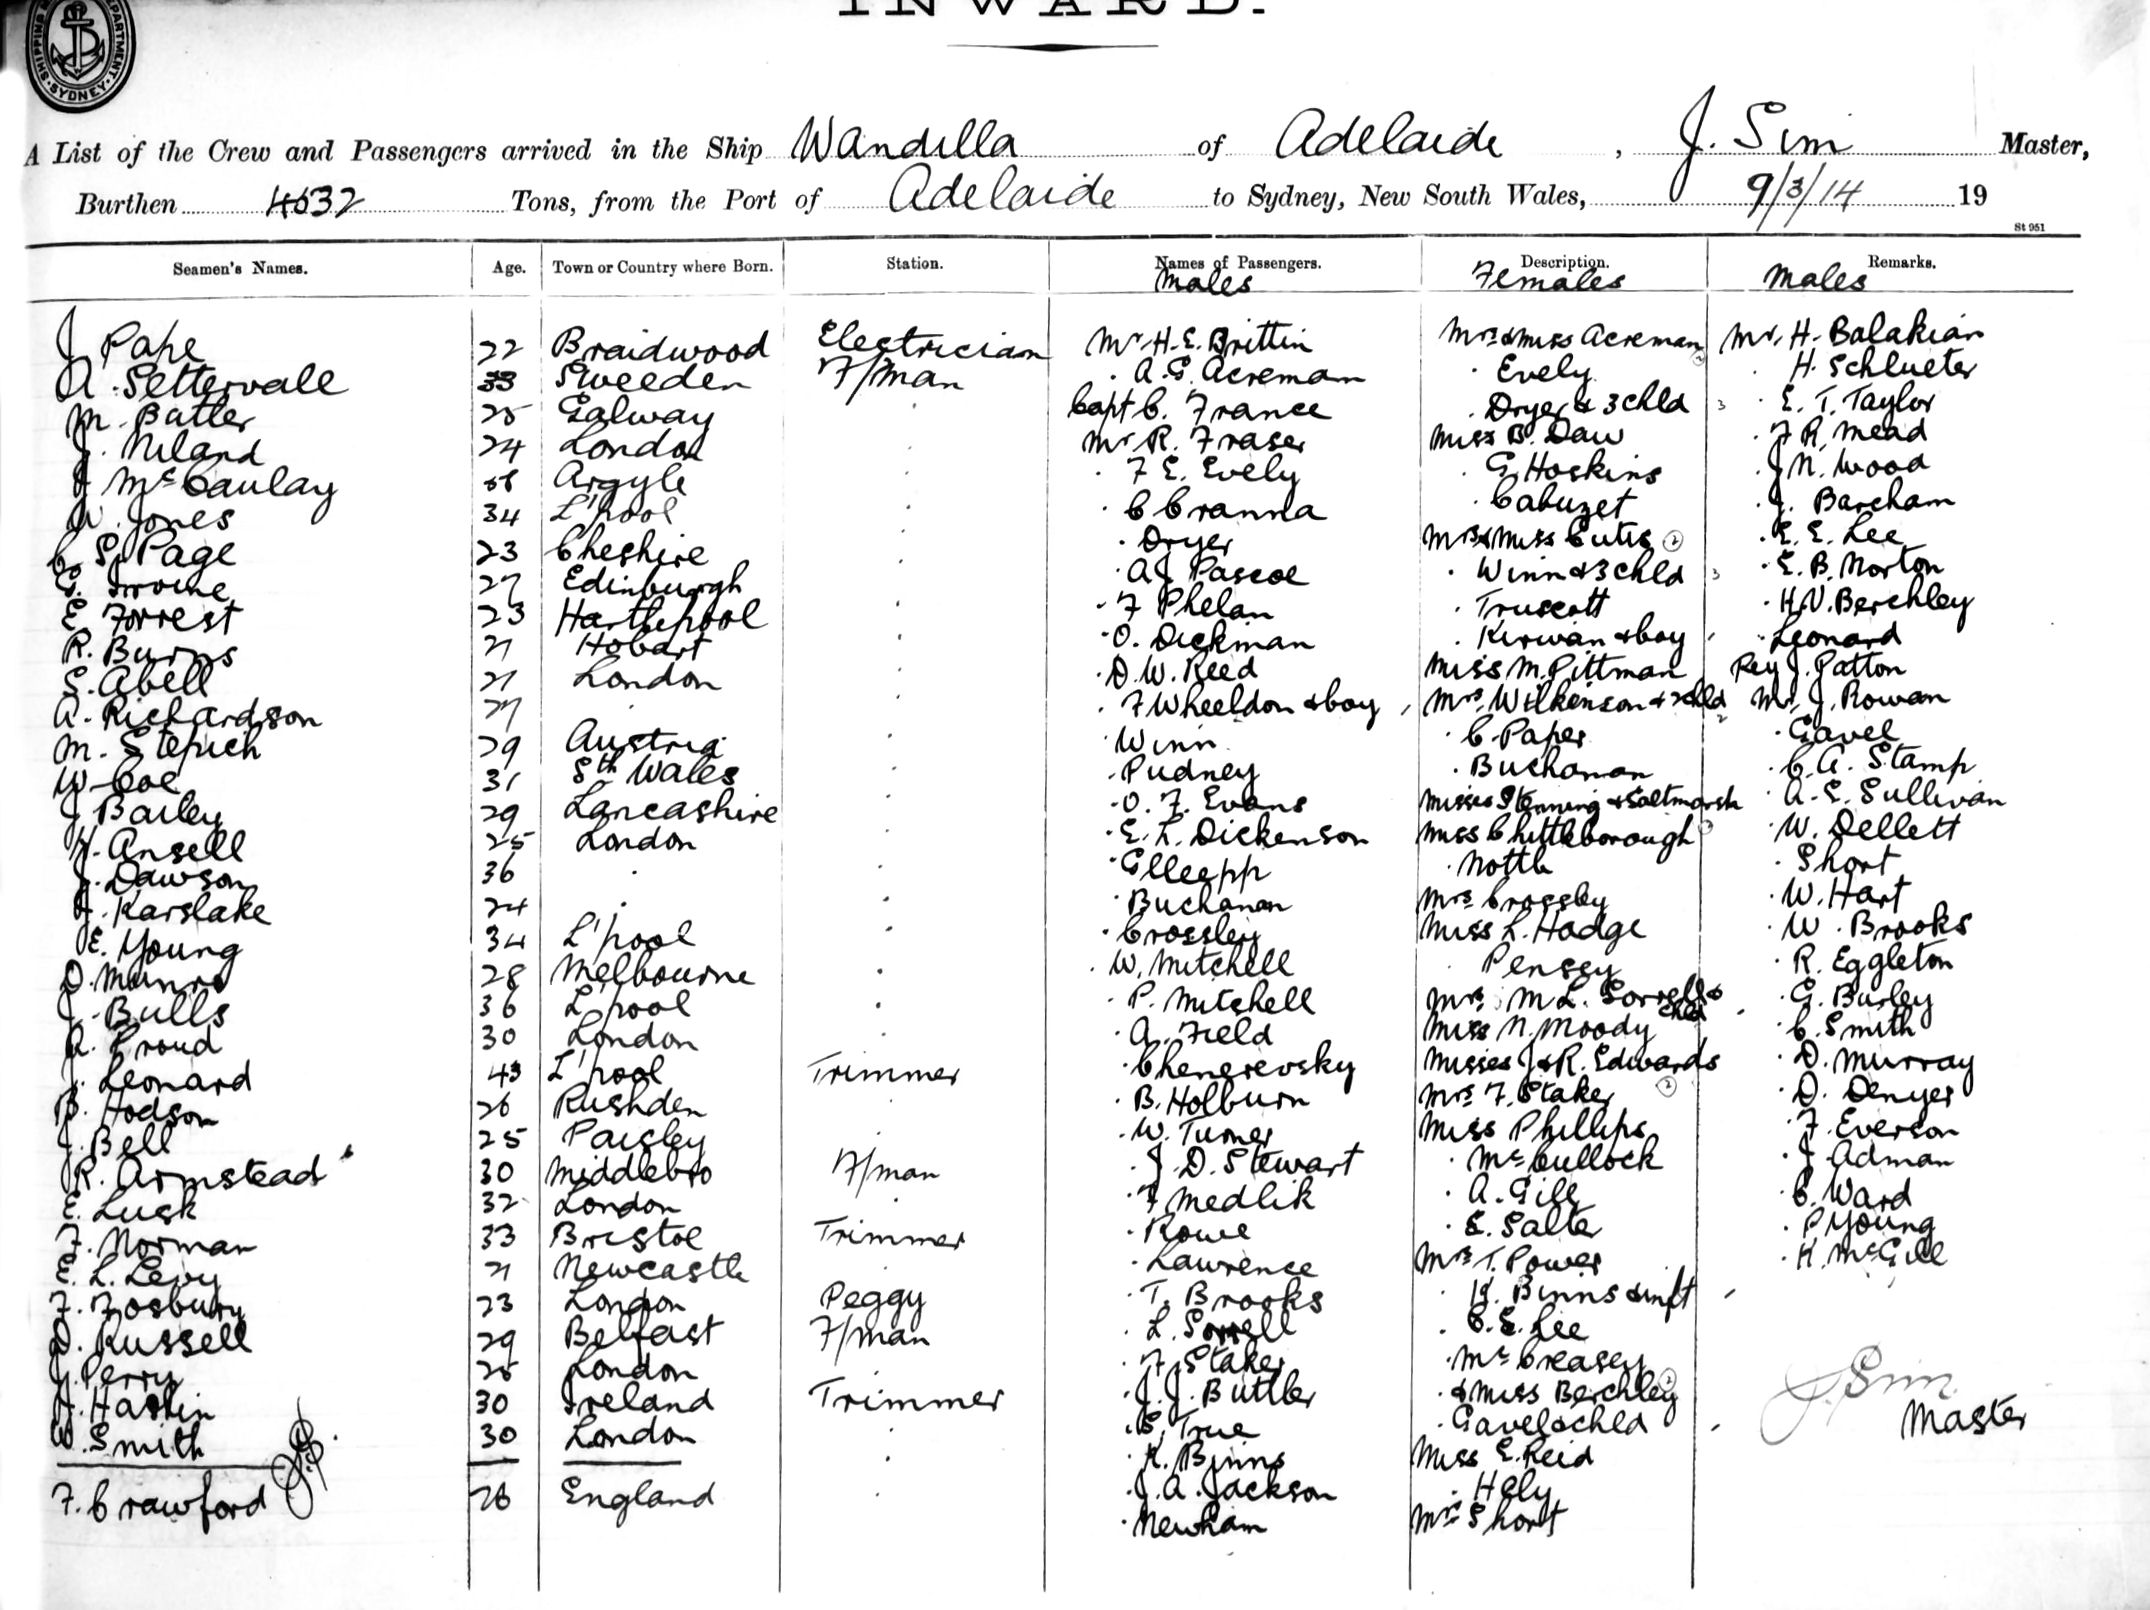 INWARD.
SHIPPING DEPARTMENT. SYDNEY.
A List of the Crew and Passengers arrived in the Ship Wandilla of Adelaide, J. Sim Master,
Burthen 4632 Tons, from the Port of Adelaide to Sydney, New South Wales, 9/3/14 19
St 951
Seamen's Names. Age. Town or Country where Born. Station. Names of Passengers. Description. Remarks.
Males Females Males
J Pape 22 Braidwood Electrician Mr H. E. Brittin Mrs & Miss Acreman Mr. H. Balakian
A. Settervall 33 Sweeden F/man A. G. Acreman Evely H. Schlueter
M. Butler 25 Galway Capt C. France Dryer & 3 chld 3 E. T. Taylor
J. Niland 24 London Mr R. Fraser Miss B. Daw F R. Mead
J McCaulay Argyle F E. Evely G Hoskins J N. Wood
W. Jones 34 L'pool C Cranna Cabuzet J. Barcham
C. S. Page 23 Cheshire Dryer Mrs & Miss Cutis 2 E. E. Lee
G. Irvine 27 Edinburgh A J Pascoe Winn & 3 chld 3 E. B. Norton
E. Forrest 23 Hartlepool F Phelan Truscott H. V. Berchley
R. Burns 21 Hobart O. Dickman Kirwan & boy Leonard
S. Abell 21 London D. W. Reed Miss M. Pittman Rev J. Patton
A. Richardson F Wheeldon & boy Mrs. Wilkinson & 2 chld 2 Mr. J. Rowan
M. Stepich 29 Austria Winn C. Paper Gavel
W. Coe 31 Sth Wales Pudney Buchanan C. A. Stamp
J Bailey 29 Lancashire O. F. Evans Misses Stenning & Saltmarsh A. E. Sullivan
H. Ansell 25 London E. L. Dickenson Miss Chittleborough W. Dellett
J. Dawson 36 Glleepp Nottle Short
J. Karslake 24 Buchanan Mrs Crossley W. Hart
E. Young 34 L'pool Crossley Miss L. Hodge W. Brooks
D. Munro 28 Melbourne W. Mitchell Pensey R. Eggleton
J. Bulls 36 L'pool P. Mitchell Mrs M L. Sorrell & chld G. Burley
A. Proud 30 London A. Field Miss N. Moody C. Smith
J. Leonard 43 L'pool Trimmer Chenerevsky Misses J & R. Edwards D. Murray
B. Hodson 26 Rushden B. Holburn Mrs F. Staker 2 D. Denyer
J. Bell 25 Paisley W. Turner Miss Phillips F. Everson
R. Armstead 30 Middlebro F/man J. D. Stewart McCullock J. Adman
E. Lusk 32 London F Medlik A. Gill C. Ward
F. Norman 33 Bristol Trimmer Rowe E. Salter P Young
E. L. Levy 21 Newcastle Lawrence Mrs T. Power H. McGill
F. Fosbury 23 London Peggy T. Brooks H. Binns & inft
D. Russell 29 Belfast F/man L. Sorrell C. E. Lee
J. Perry 25 London F Staker McCreasey J. Sim
J. Haslin 30 Ireland Trimmer J. J. Buttler & Miss Berchley 2 Master
W. Smith 30 London E. True Gavel & chld
R. Binns Miss E. Reid
F. Crawford 26 England J. A. Jackson Haly
Newham Mrs Short